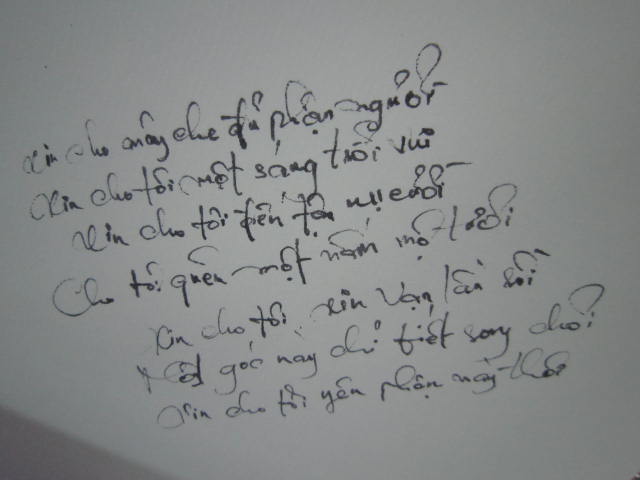 Xin cho mây che đủ phận người
Xin cho tôi một sáng trời vui
Xin cho tôi đến tận nụ cười
Cho tôi quên một năm mộ tươi
Xin cho tôi xin vạn lần rồi
góc này chỉ tiết song
Xin cho tôi yên phận này thôi